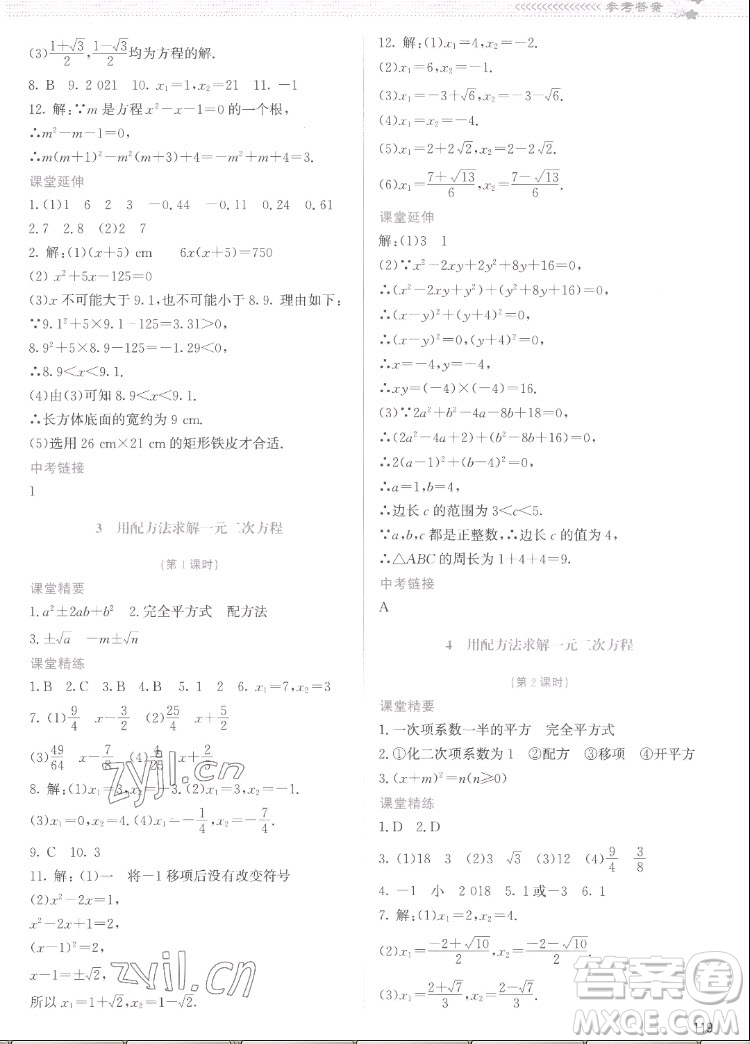 参考答案
(3)(1+√3)/2,(1-√3)/2均为方程的解.
8. B 9. 2 021 10. x₁=1,x₂=21 11. -1
12. 解:∵m是方程x²-x-1=0的一个根,
∴m²-m-1=0,
∴m(m+1)²-m²(m+3)+4=3.
课堂延伸
1. (1)1 6 2 3 -0.44 -0.11 0.24 0.61
2.7 2.8 (2)2 7
2. 解:(1)(x+5) cm 6x(x+5)=750
(2) x²+5x-125=0
(3)x不可能大于9.1,也不可能小于8.9. 理由如下:
∵9.1²+5×9.1-125=3.31>0,
8.9²+5×8.9-125=-1.29<0,
∴8.9<x<9.1.
(4)由(3)可知 8.9<x<9.1.
∴长方体底面的宽约为9 cm.
(5)选用26 cm×21 cm的矩形铁皮才合适.
中考链接
1
3 用配方法求解一元二次方程
(第1课时)
课堂精要
1. a²±2ab+b² 2. 完全平方式 配方法
3. ±√a -m±√n
课堂精练
1. B 2. C 3. B 4. B 5. 1 2 6. x₁=7,x₂=3
7. (1)9/4 x-3/2 (2)25/4 x+5/2
(3)49/64 x-7/8 (4)4/25 x+2/5
8. 解:(1)x₁=3,x₂=-3. (2)x₁=2,x₂=-4.
(3)x₁=0,x₂=-4. (4)x₁=-1/4,x₂=-7/4.
9. C 10. 3
11. 解:(1)一 将-1移项后没有改变符号
(2)x²-2x=1,
x²-2x+1=2,
(x-1)²=2,
x-1=±√2,
所以x₁=1+√2,x₂=1-√2.
12. 解:(1)x₁=4,x₂=-1.
(2)x₁=6,x₂=-1.
(3)x₁=-3+√6,x₂=-3-√6.
(4)x₁=x₂=-4.
(5)x₁=2+2√2,x₂=2-2√2.
(6)x₁=(7+√13)/6,x₂=(7-√13)/6.
课堂延伸
解:(1)3 1
(2)∵x²-2xy+2y²+8y+16=0,
∴(x²-2xy+y²)+(y²+8y+16)=0,
∴(x-y)²+(y+4)²=0,
∴x-y=0,y+4=0,
∴x=-4,y=-4,
∴xy=(-4)×(-4)=16.
(3)∵2a²+b²-4a-8b+18=0,
∴(2a²-4a+2)+(b²-8b+16)=0,
∴2(a-1)²+(b-4)²=0,
∴a=1,b=4,
∴边长c的范围为3<c<5.
∵a,b,c都是正整数,∴边长c的值为4,
∴△ABC的周长为1+4+4=9.
中考链接
A
4 用配方法求解一元二次方程
(第2课时)
课堂精要
1. 一次项系数一半的平方 完全平方式
2. ①化二次项系数为1 ②配方 ③移项 ④开平方
3. (x+m)²=n(n≥0)
课堂精练
1. D 2. D
3. (1)18 3 (2)3 √3 (3)12 2 (4)9/4 3/8
4. -1 小 2 018 5. 1或-3 6. 1
7. 解:(1)x₁=-2,x₂=4.
(2)x₁=(-2+√10)/2,x₂=(-2-√10)/2.
(3)x₁=(2+√7)/3,x₂=(2-√7)/3.
zyjl.cn
zyjl.cn
答案圈
MXQE.COM
119